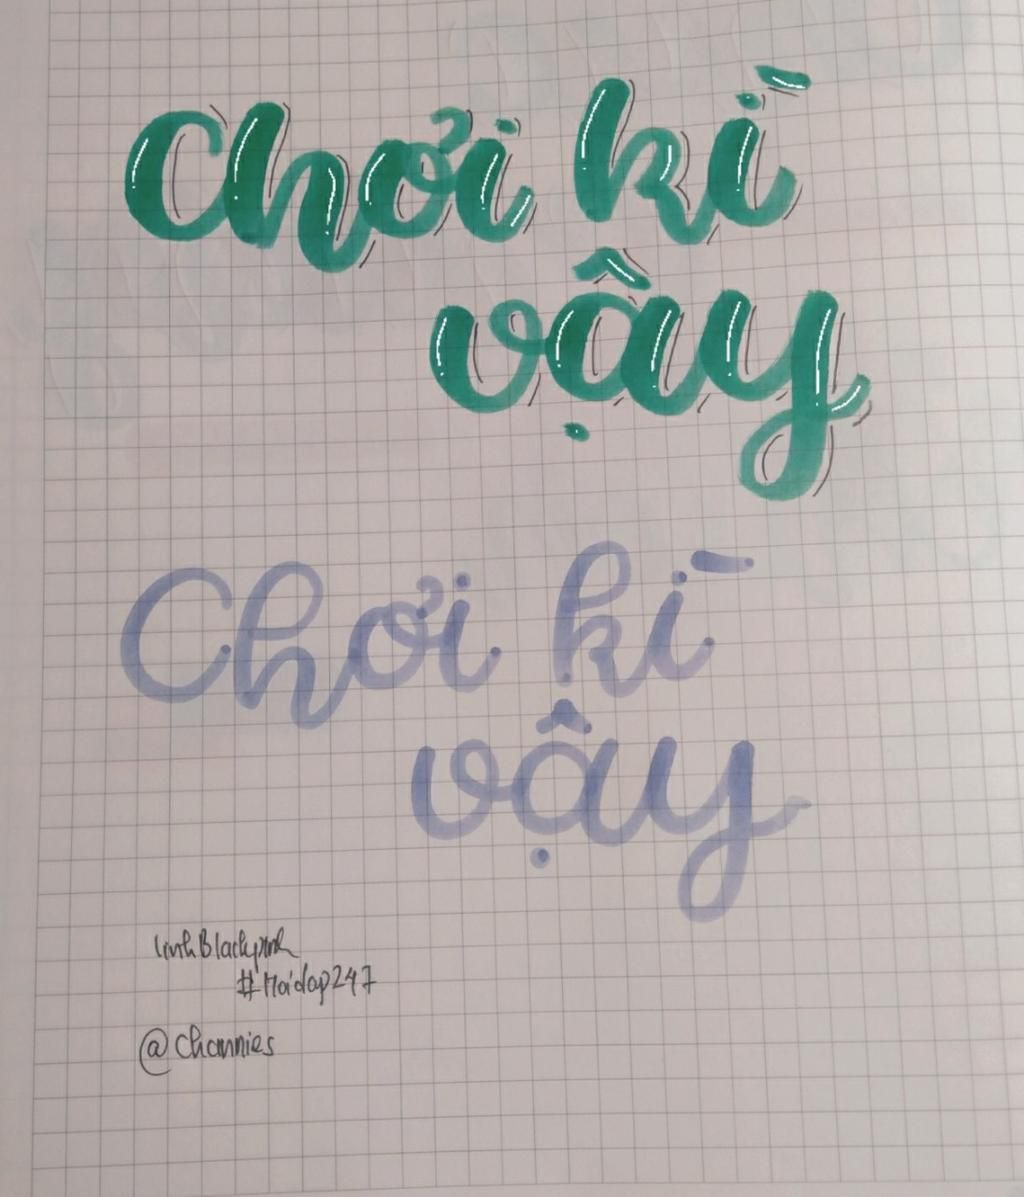 Chơi kì
vậy
Chơi kì
vậy
linhBlackpink
#Hoidap247
@channies